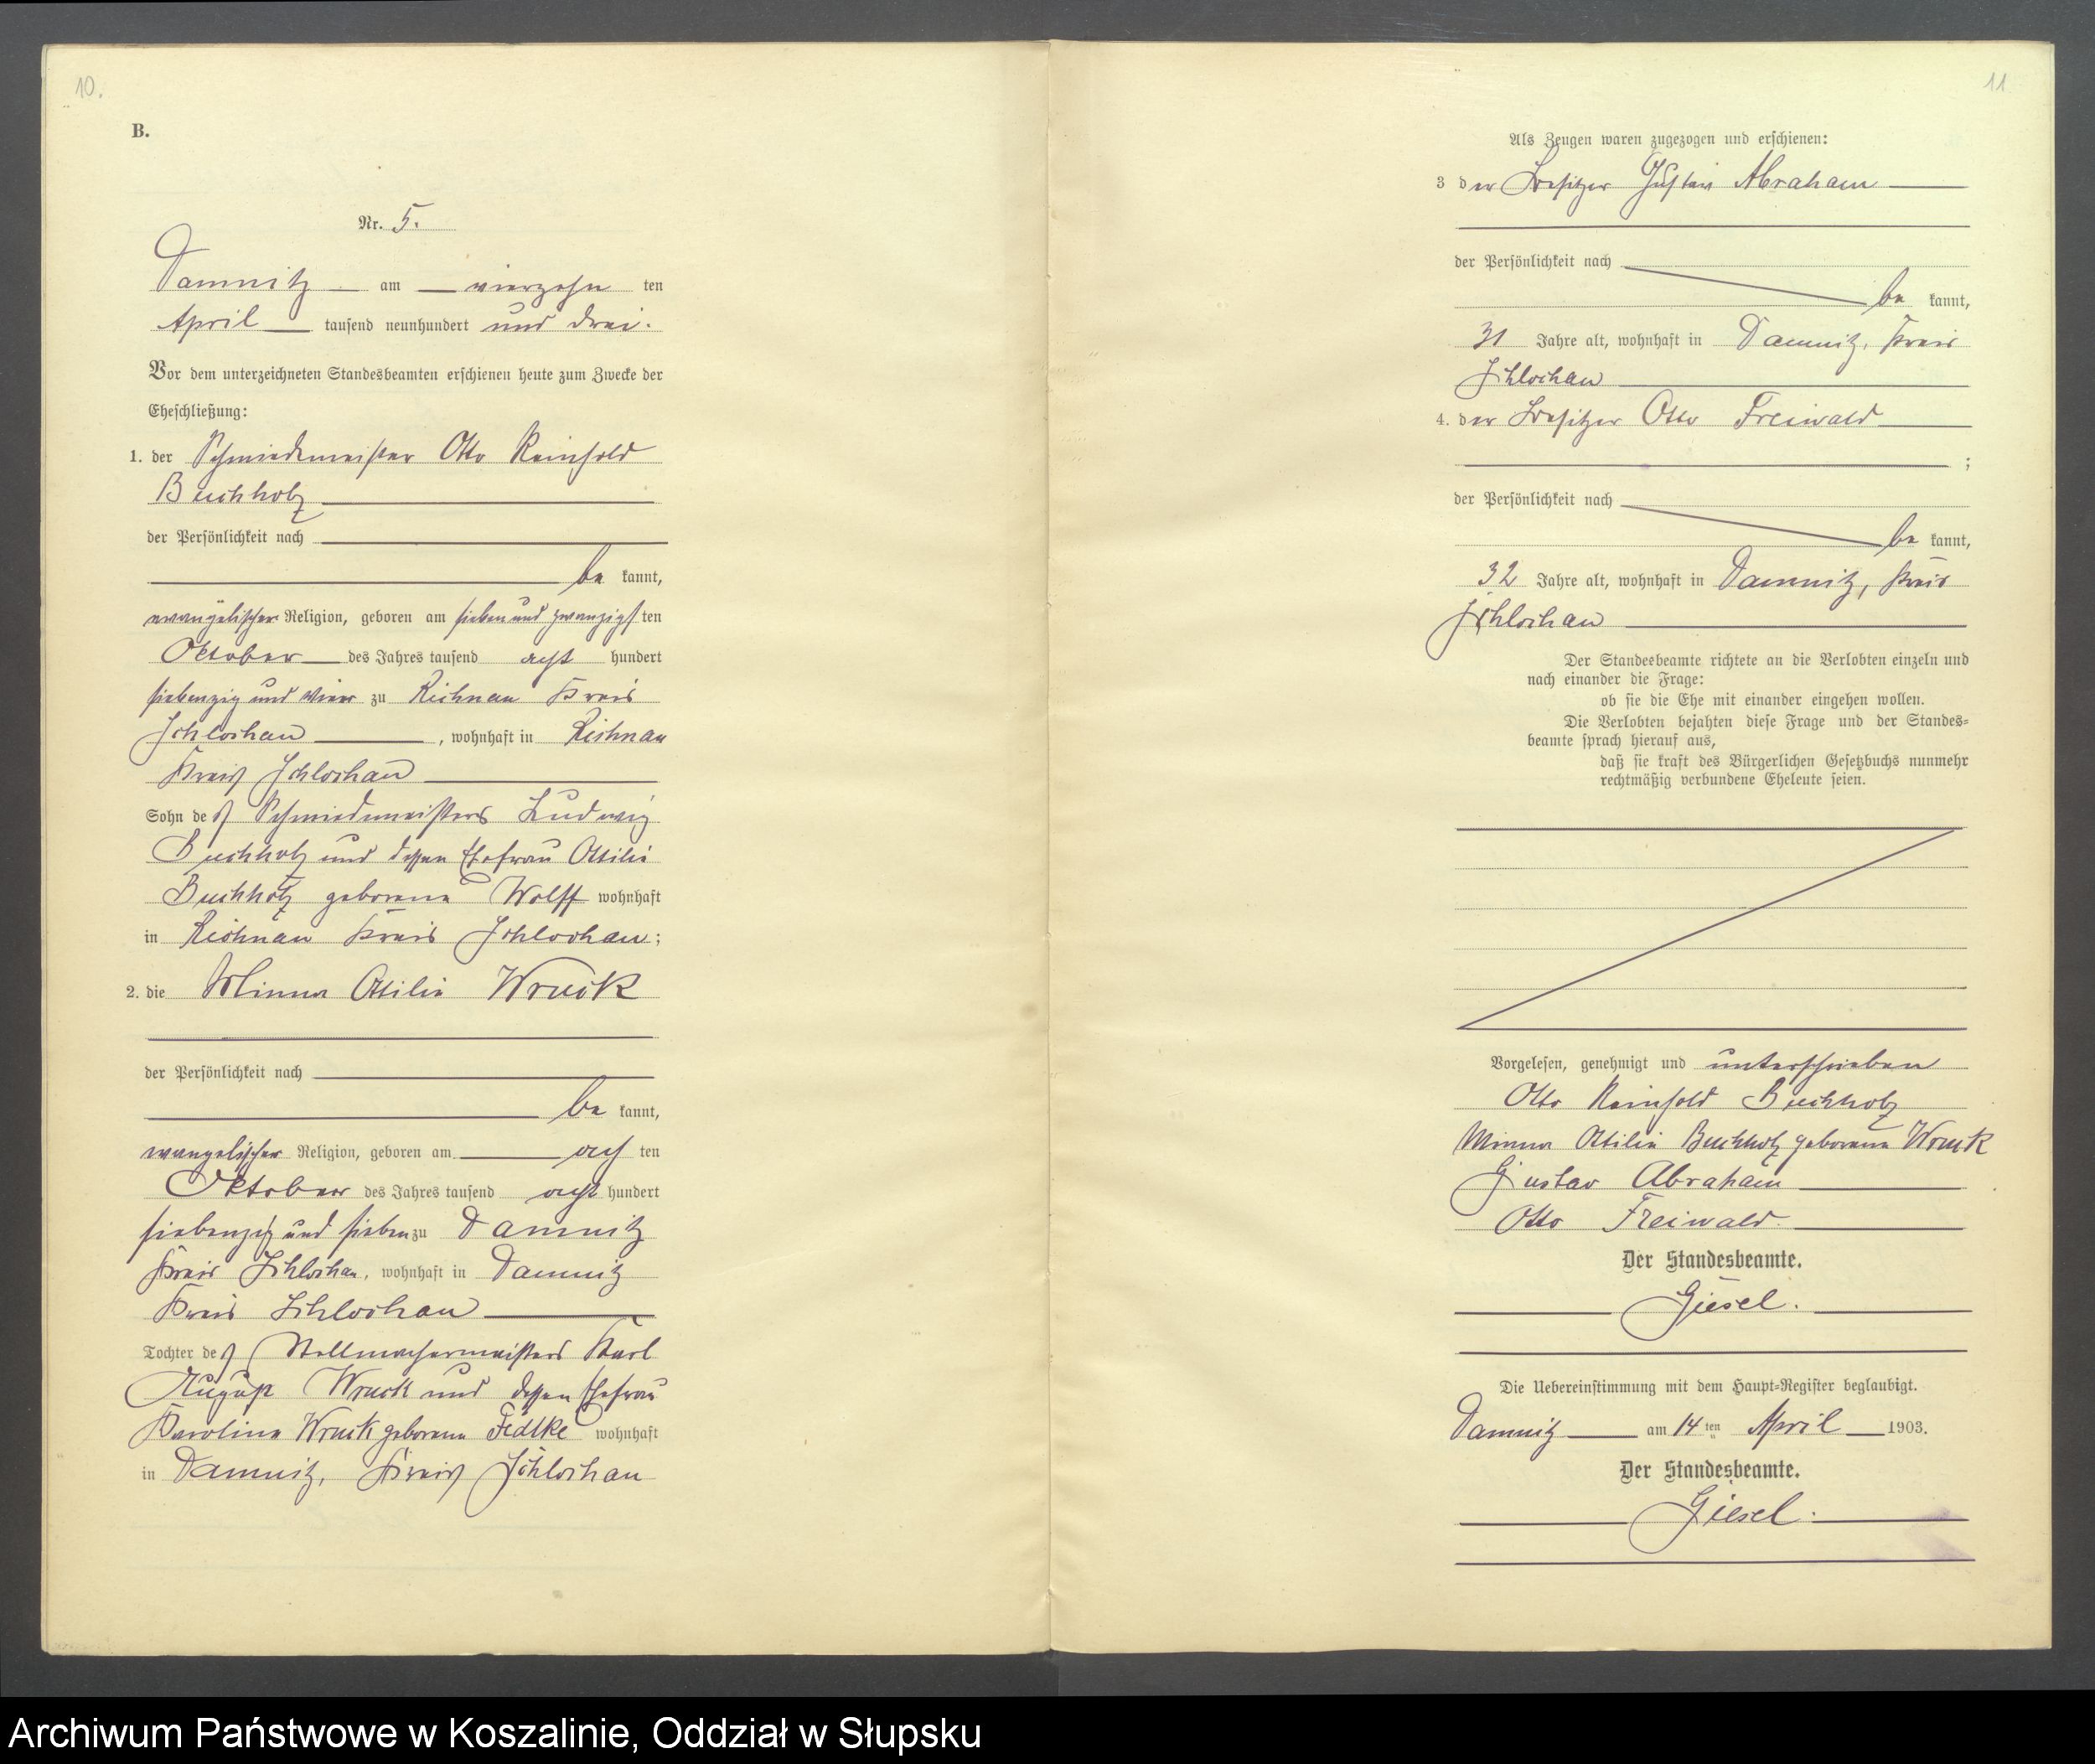 10.
B.
Nr. 5.
Damnitz am vierzehn ten
April tausend neunhundert und drei.
Vor dem unterzeichneten Standesbeamten erschienen heute zum Zwecke der
Eheschließung:
1. der Schmiedemeister Otto Reinhold
Buchholz
der Persönlichkeit nach
be kannt,
evangelischer Religion, geboren am sieben und zwanzigs ten
Oktober des Jahres tausend acht hundert
siebenzig und vier zu Richnau Kreis
Schlochau, wohnhaft in Richnau
Kreis Schlochau
Sohn des Schmiedemeisters Ludwig
Buchholz und dessen Ehefrau Ottilie
Buchholz geborene Wolff wohnhaft
in Richnau Kreis Schlochau;
2. die Minna Ottilie Wruck
der Persönlichkeit nach
be kannt,
evangelischer Religion, geboren am ach ten
Oktober des Jahres tausend acht hundert
siebenzig und sieben zu Damnitz
Kreis Schlochau, wohnhaft in Damnitz
Kreis Schlochau
Tochter des Stellmachermeisters Karl
August Wruck und dessen Ehefrau
Karoline Wruck geborene Fedtke wohnhaft
in Damnitz, Kreis Schlochau
11
Als Zeugen waren zugezogen und erschienen:
3 der Besitzer Gustav Abraham
der Persönlichkeit nach
be kannt,
31 Jahre alt, wohnhaft in Damnitz, Kreis
Schlochau
4. der Besitzer Otto Freiwald
;
der Persönlichkeit nach
be kannt,
32 Jahre alt, wohnhaft in Damnitz, Kreis
Schlochau
Der Standesbeamte richtete an die Verlobten einzeln und
nach einander die Frage:
ob sie die Ehe mit einander eingehen wollen.
Die Verlobten bejahten diese Frage und der Standes-
beamte sprach hierauf aus,
daß sie kraft des Bürgerlichen Gesetzbuchs nunmehr
rechtmäßig verbundene Eheleute seien.
Vorgelesen, genehmigt und unterschrieben
Otto Reinhold Buchholz
Minna Ottilie Buchholz geborene Wruck
Gustav Abraham
Otto Freiwald
Der Standesbeamte.
Giesel.
Die Uebereinstimmung mit dem Haupt-Register beglaubigt.
Damnitz am 14 ten April 1903.
Der Standesbeamte.
Giesel.
Archiwum Państwowe w Koszalinie, Oddział w Słupsku